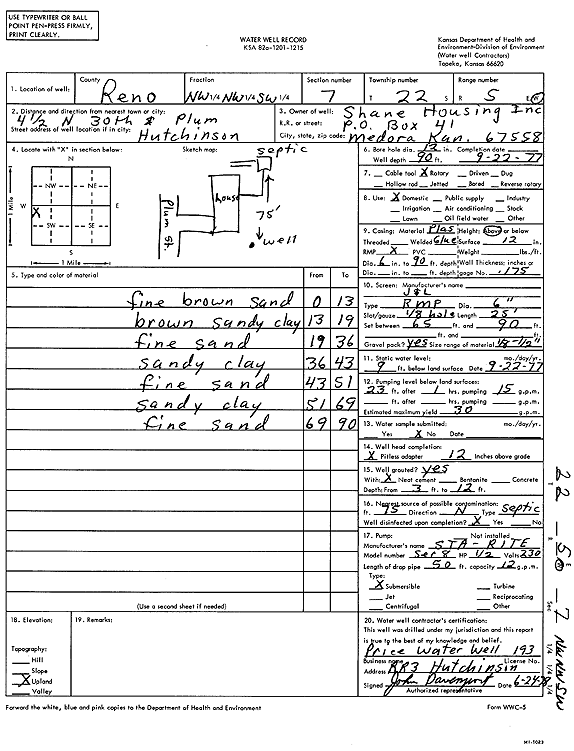 USE TYPEWRITER OR BALL
POINT PEN-PRESS FIRMLY,
PRINT CLEARLY.
WATER WELL RECORD
KSA 82a-1201-1215
Kansas Department of Health and
Environment-Division of Environment
(Water well Contractors)
Topeka, Kansas 66620
1. Location of well: County Reno Fraction NW 1/4 NW 1/4 SW 1/4 Section number 7 Township number T 22 S Range number R 5 E W
2. Distance and direction from nearest town or city: 4 1/2 N 30th & Plum
Street address of well location if in city: Hutchinson
3. Owner of well: Shane Housing Inc
R.R. or street: P.O. Box 41
City, state, zip code: Medora Kan. 67558
4. Locate with "X" in section below:
N
NW NE
W X E
SW SE
S
1 Mile
1 Mile
Sketch map:
septic
house
Plum St
75'
well
6. Bore hole dia. 12 in. Completion date
Well depth 90 ft. 9-22-77
7. Cable tool X Rotary Driven Dug
Hollow rod Jetted Bored Reverse rotary
8. Use: X Domestic Public supply Industry
Irrigation Air conditioning Stock
Lawn Oil field water Other
9. Casing: Material Plas Height: Above or below
Threaded Welded Glue Surface 12 in.
RMP X PVC Weight lbs./ft.
Dia. 6 in. to 90 ft. depth Wall Thickness: inches or
Dia. in. to ft. depth gage No. .175
5. Type and color of material From To
fine brown sand 0 13
brown sandy clay 13 19
fine sand 19 36
sandy clay 36 43
fine sand 43 51
sandy clay 51 69
fine sand 69 90
(Use a second sheet if needed)
10. Screen: Manufacturer's name
J&L
Type RMP Dia. 6"
Slot/gauze 1/8 hole Length 25'
Set between 65 ft. and 90 ft.
ft. and ft.
Gravel pack? yes Size range of material 1/8-1/2"
11. Static water level: mo./day/yr.
9 ft. below land surface Date 9-22-77
12. Pumping level below land surfaces:
23 ft. after 1 hrs. pumping 15 g.p.m.
ft. after hrs. pumping g.p.m.
Estimated maximum yield 30 g.p.m.
13. Water sample submitted: mo./day/yr.
Yes X No Date
14. Well head completion:
X Pitless adapter 12 Inches above grade
15. Well grouted? yes
With: X Neat cement Bentonite Concrete
Depth: From 3 ft. to 12 ft.
16. Nearest source of possible contamination:
ft. 75 Direction N Type septic
Well disinfected upon completion? X Yes No
17. Pump: Not installed
Manufacturer's name STA-RITE
Model number Ser 8 HP 1/2 Volts 230
Length of drop pipe 50 ft. capacity 12 g.p.m.
Type:
X Submersible Turbine
Jet Reciprocating
Centrifugal Other
18. Elevation:
Topography:
Hill
Slope
X Upland
Valley
19. Remarks:
20. Water well contractor's certification:
This well was drilled under my jurisdiction and this report
is true to the best of my knowledge and belief.
Price Water Well 193
Business name License No.
Address RR3 Hutchinson
Signed John Davenport Date
Authorized representative
T 22 - R 5 E W - Sec 7 1/4 1/4 1/4 NW NW SW
Forward the white, blue and pink copies to the Department of Health and Environment
Form WWC-5